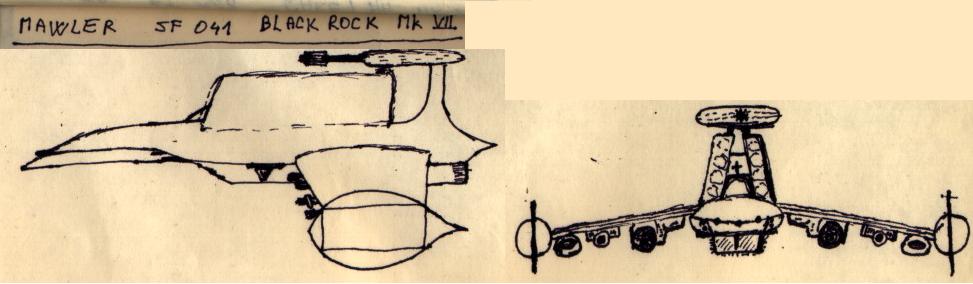 MAWLER SF 041 BLACK ROCK Mk VII